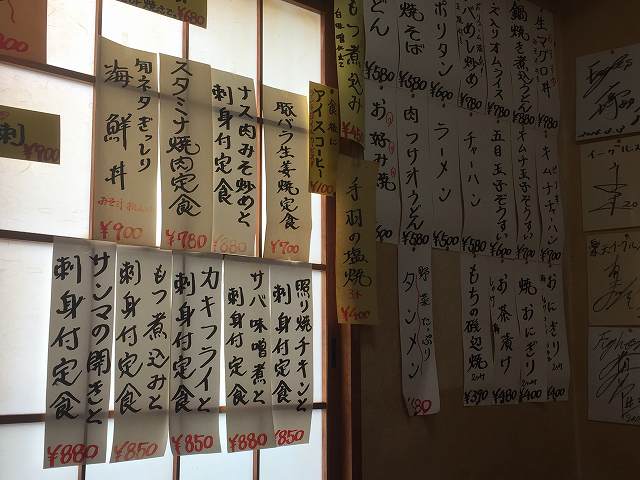 もつ煮込み
白味噌仕立て
¥900
旬ネタぎっしり
海鮮丼
¥900
スタミナ焼肉定食
¥780
ナス肉みそ炒めと
刺身付定食
¥880
豚バラ生姜焼定食
¥700
食後に
アイスコーヒー
¥100
手羽の塩焼
3本
¥400
サンマの開きと
刺身付定食
¥880
もつ煮込みと
刺身付定食
¥850
カキフライと
刺身付定食
¥850
サバ味噌煮と
刺身付定食
¥880
照り焼チキンと
刺身付定食
¥850
生マグロ丼
鍋焼き煮込うどん
¥780
ス入りオムライス
¥700
バめし炒め
¥780
ポリタン
¥680
焼そば
¥580
どん
¥580
キムチチャーハン
¥700
オムナ玉子ぞうすい
五目玉子ぞうすい
チャーハン
¥500
ラーメン
¥500
肉つけ汁うどん
¥580
お好み焼
おにぎり
¥400
焼おにぎり
¥400
お茶漬け
¥480
もちの磯辺焼
¥390
野菜たっぷり
タンメン